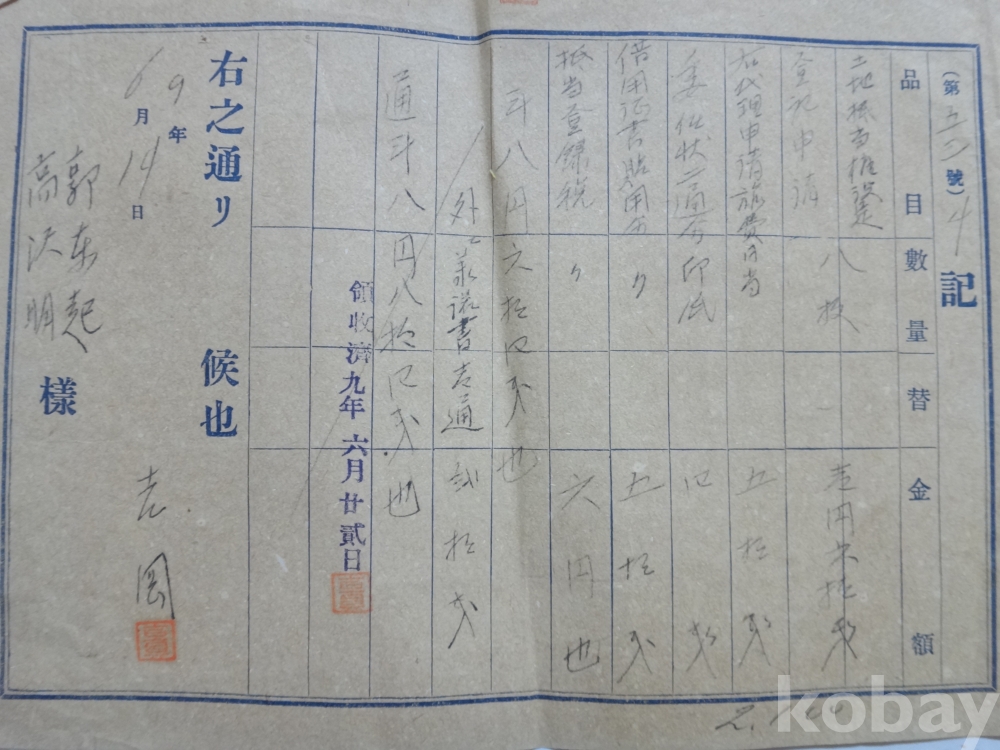 (第五〇號) 4
記
品目 數量 替 金額
土地抵当権設定
登記申請 八枚 壱円六拾戋
右代理申請旅費日当 五拾戋
委任状二通分印紙 四戋
借用证書貼用分 〃 五拾戋
抵当登録税 〃 六円也
計八円六拾四戋也
外ニ承諾書壱通 弐拾戋
通計八円八拾四戋也
領收濟九年六月廿貳日
右之通リ候也
9年6月14日 吉岡
郭东起
高沢明 樣
kobay